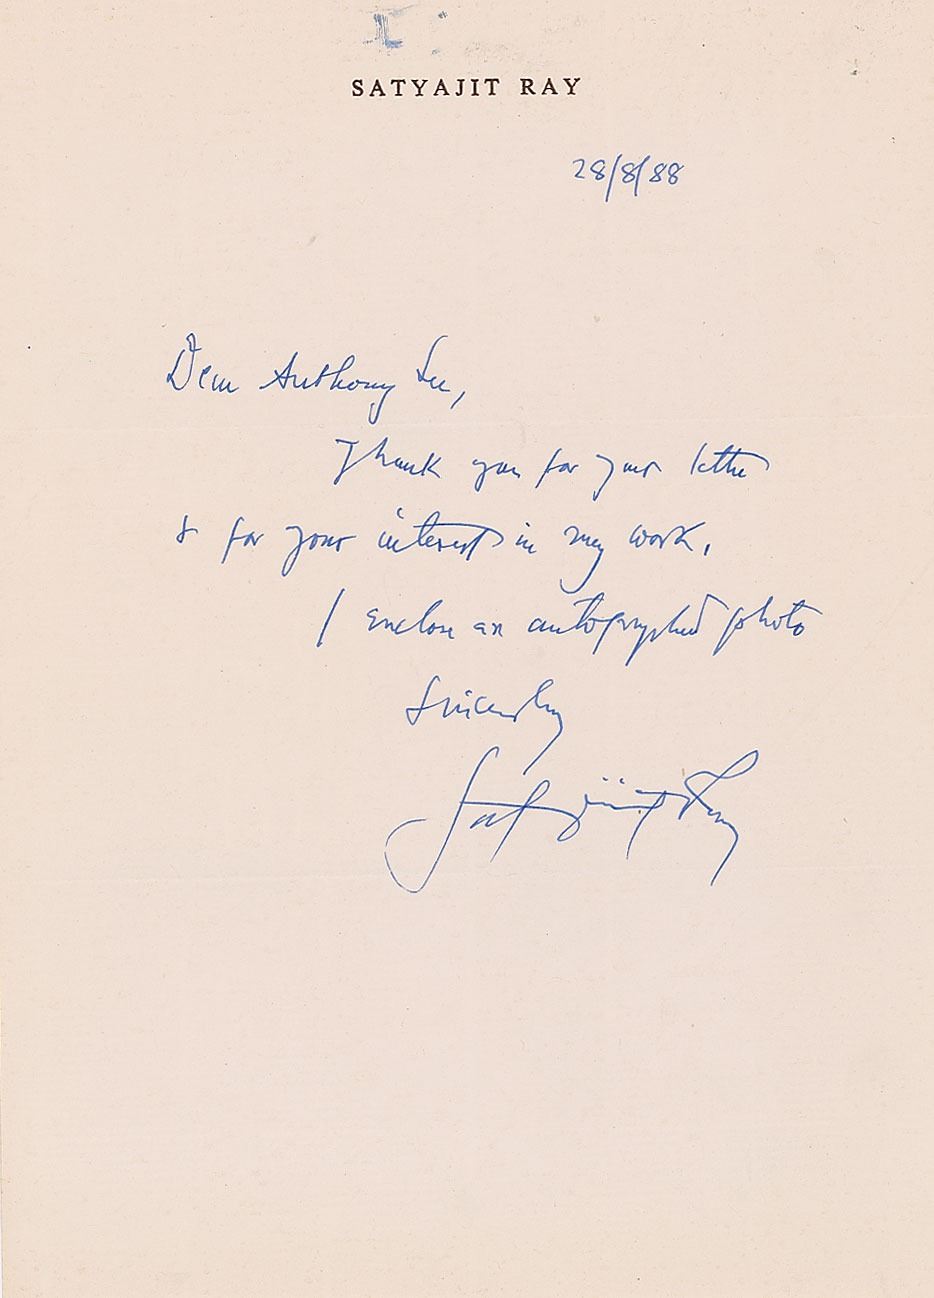 SATYAJIT RAY
28/8/88
Dear Anthony Lee,
Thank you for your letter
& for your interest in my work.
I enclose an autographed photo
Sincerely
Satyajit Ray